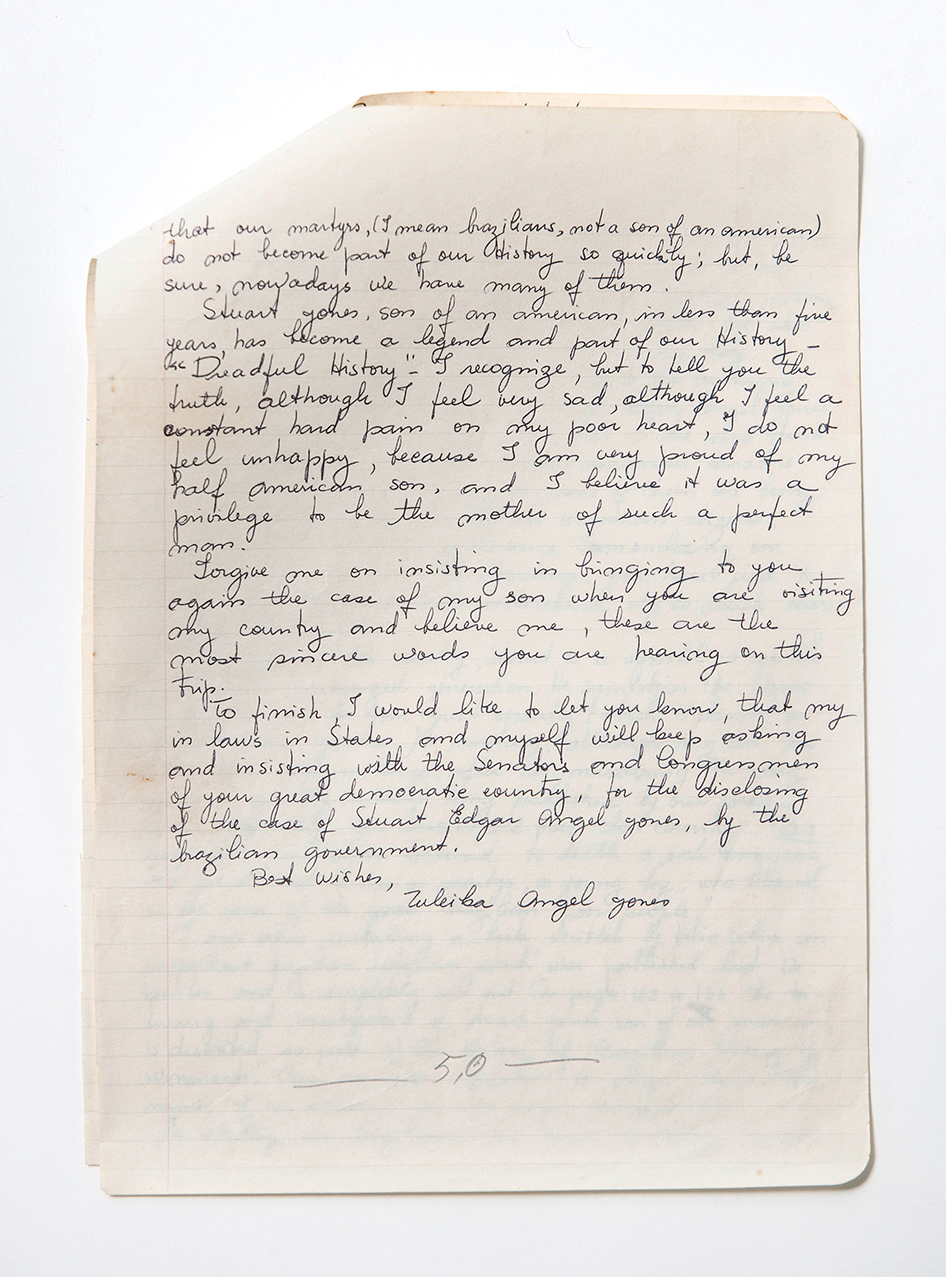 that our martyrs, (I mean brazilians, not a son of an american)
do not become part of our History so quickly; but, be
sure, nowadays we have many of them.
Stuart Jones, son of an american, in less than five
years, has become a legend and part of our History –
"Dreadful History" – I recognize, but to tell you the
truth, although I feel very sad, although I feel a
constant hard pain on my poor heart, I do not
feel unhappy, because I am very proud of my
half american son, and I believe it was a
privilege to be the mother of such a perfect
man.
Forgive me on insisting in bringing to you
again the case of my son when you are visiting
my country and believe me, these are the
most sincere words you are hearing on this
trip.
To finish, I would like to let you know, that my
in laws in States and myself will keep asking
and insisting with the Senators and Congressmen
of your great democratic country, for the disclosing
of the case of Stuart Edgar Angel Jones, by the
brazilian government.
Best wishes,
Zuleika Angel Jones
5,0